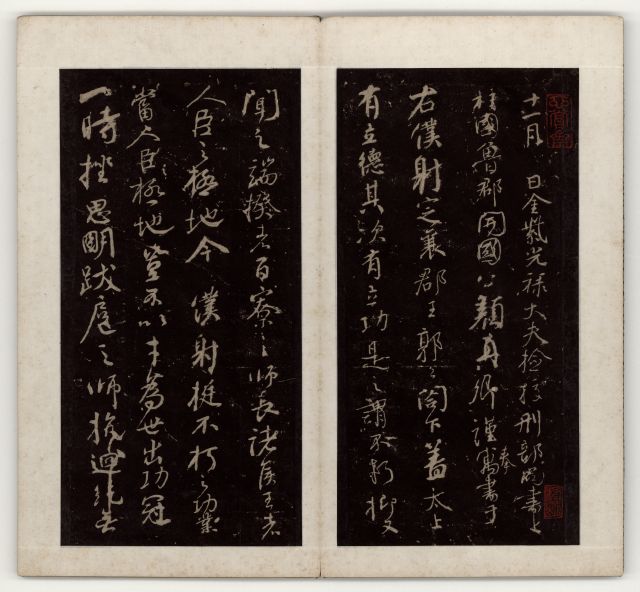 十一月 日金紫光祿大夫檢挍刑部尚書上
柱國魯郡開國公顏真卿謹奉寓書于
右僕射定襄郡王郭公閤下蓋太上
有立德其次有立功是之謂不朽抑又
聞之端揆者百寮之師長諸侯王者
人臣之極地今 僕射挺不朽之功業
當人臣極地豈不以才為世出功冠
一時挫思明跋扈之師抗迴紇